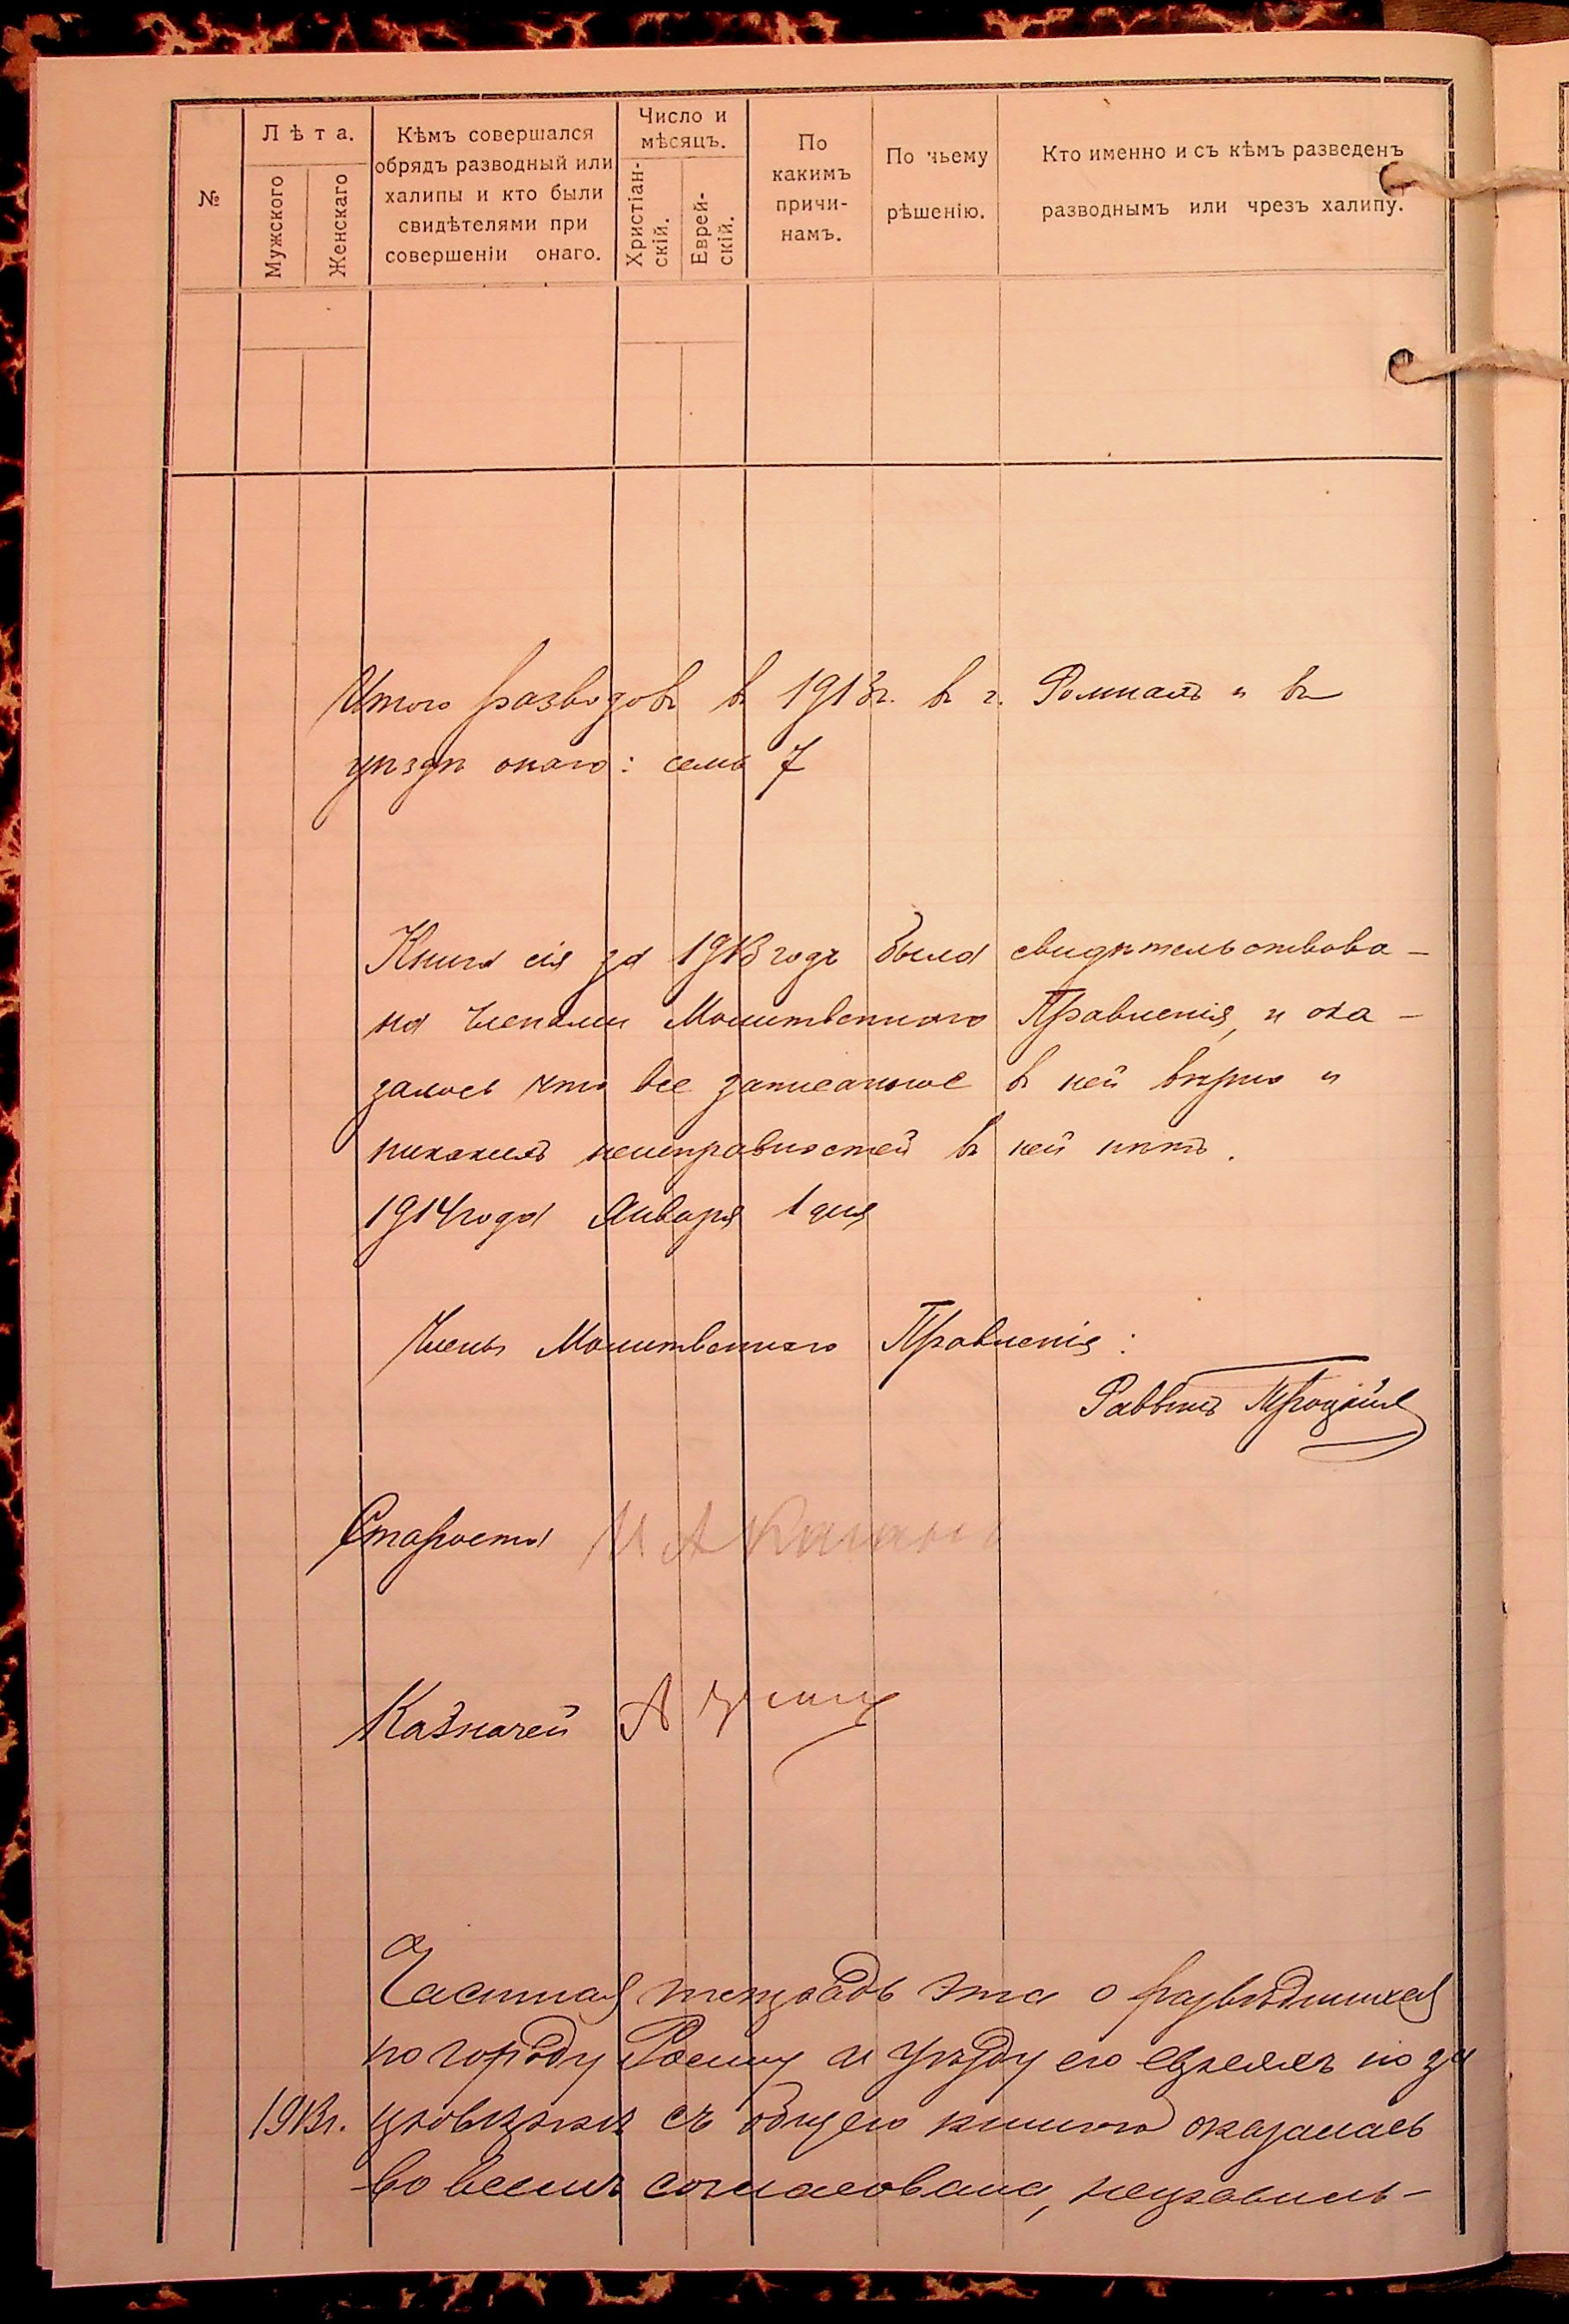 №
Лѣта.
Мужского
Женскаго
Кѣмъ совершался
обрядъ разводный или
халипы и кто были
свидѣтелями при
совершеніи онаго.
Число и
мѣсяцъ.
Христіан-
скій.
Еврей-
скій.
По
какимъ
причи-
намъ.
По чьему
рѣшенію.
Кто именно и съ кѣмъ разведенъ
разводнымъ или чрезъ халипу.
Итого разводовъ въ 1913 г. въ г. Ромнахъ и въ
уѣздѣ онаго: семь 7
Книга сія за 1913 годъ была свидѣтельствова-
на членами Молитвеннаго Правленія, и ока-
залось что все записанное въ ней вѣрно и
никакихъ неисправностей въ ней нѣтъ.
1914 года Января 1 дня
Члены Молитвеннаго Правленія:
Раввинъ
Староста И А Каганъ
Казначей А
Частная тетрадь эта о разведшихся
по городу Ромну и уѣзду его евреяхъ по за
1913 г. провѣркѣ съ общею книгою оказалась
во всемъ согласована, неправиль-